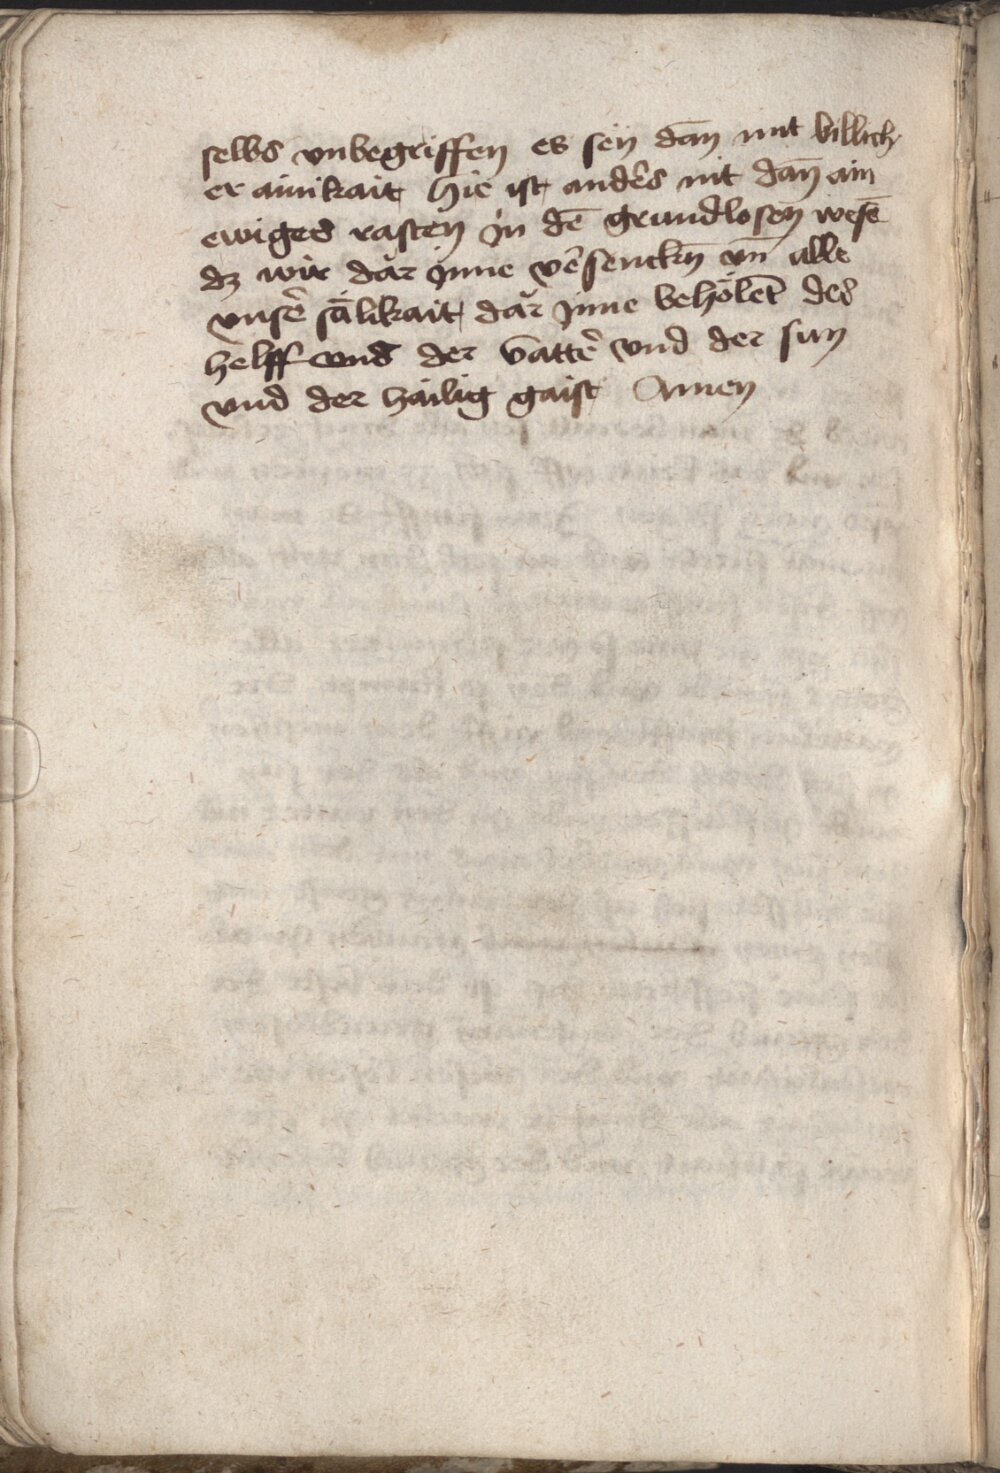 selbs vnbegriffen es sey dañ mit billich
er ainikait hie ist anders nit dañ ain
ewiges rasten jn dē grundlosen wesē
dz wir dar jnne vers̄enckn̄ vn̄ alle
vnser̄ sälikait dar jnne behölet̄ des
helff vns der vatter̄ vnd der sun
vnd der hailig gaist Amen